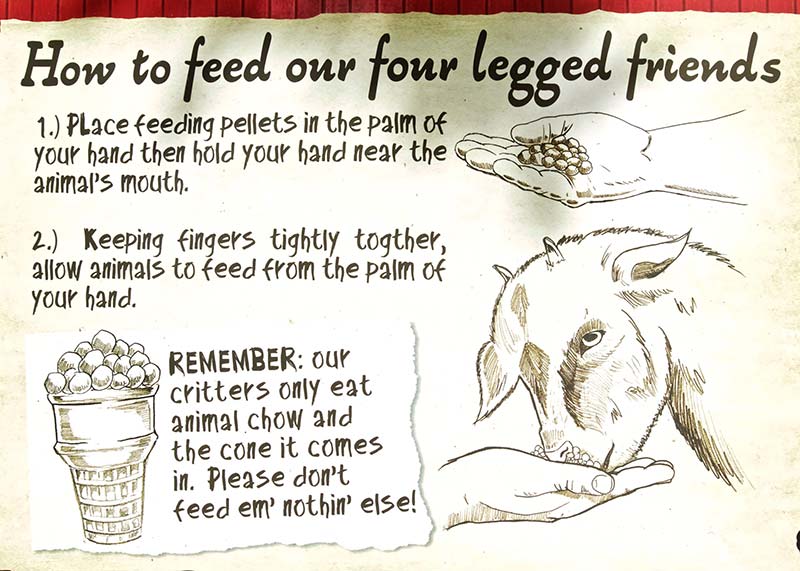 How to feed our four legged friends
1.) Place feeding pellets in the palm of
your hand then hold your hand near the
animal's mouth.
2.) Keeping fingers tightly togther,
allow animals to feed from the palm of
your hand.
REMEMBER: our
critters only eat
animal chow and
the cone it comes
in. Please don't
feed em' nothin' else!